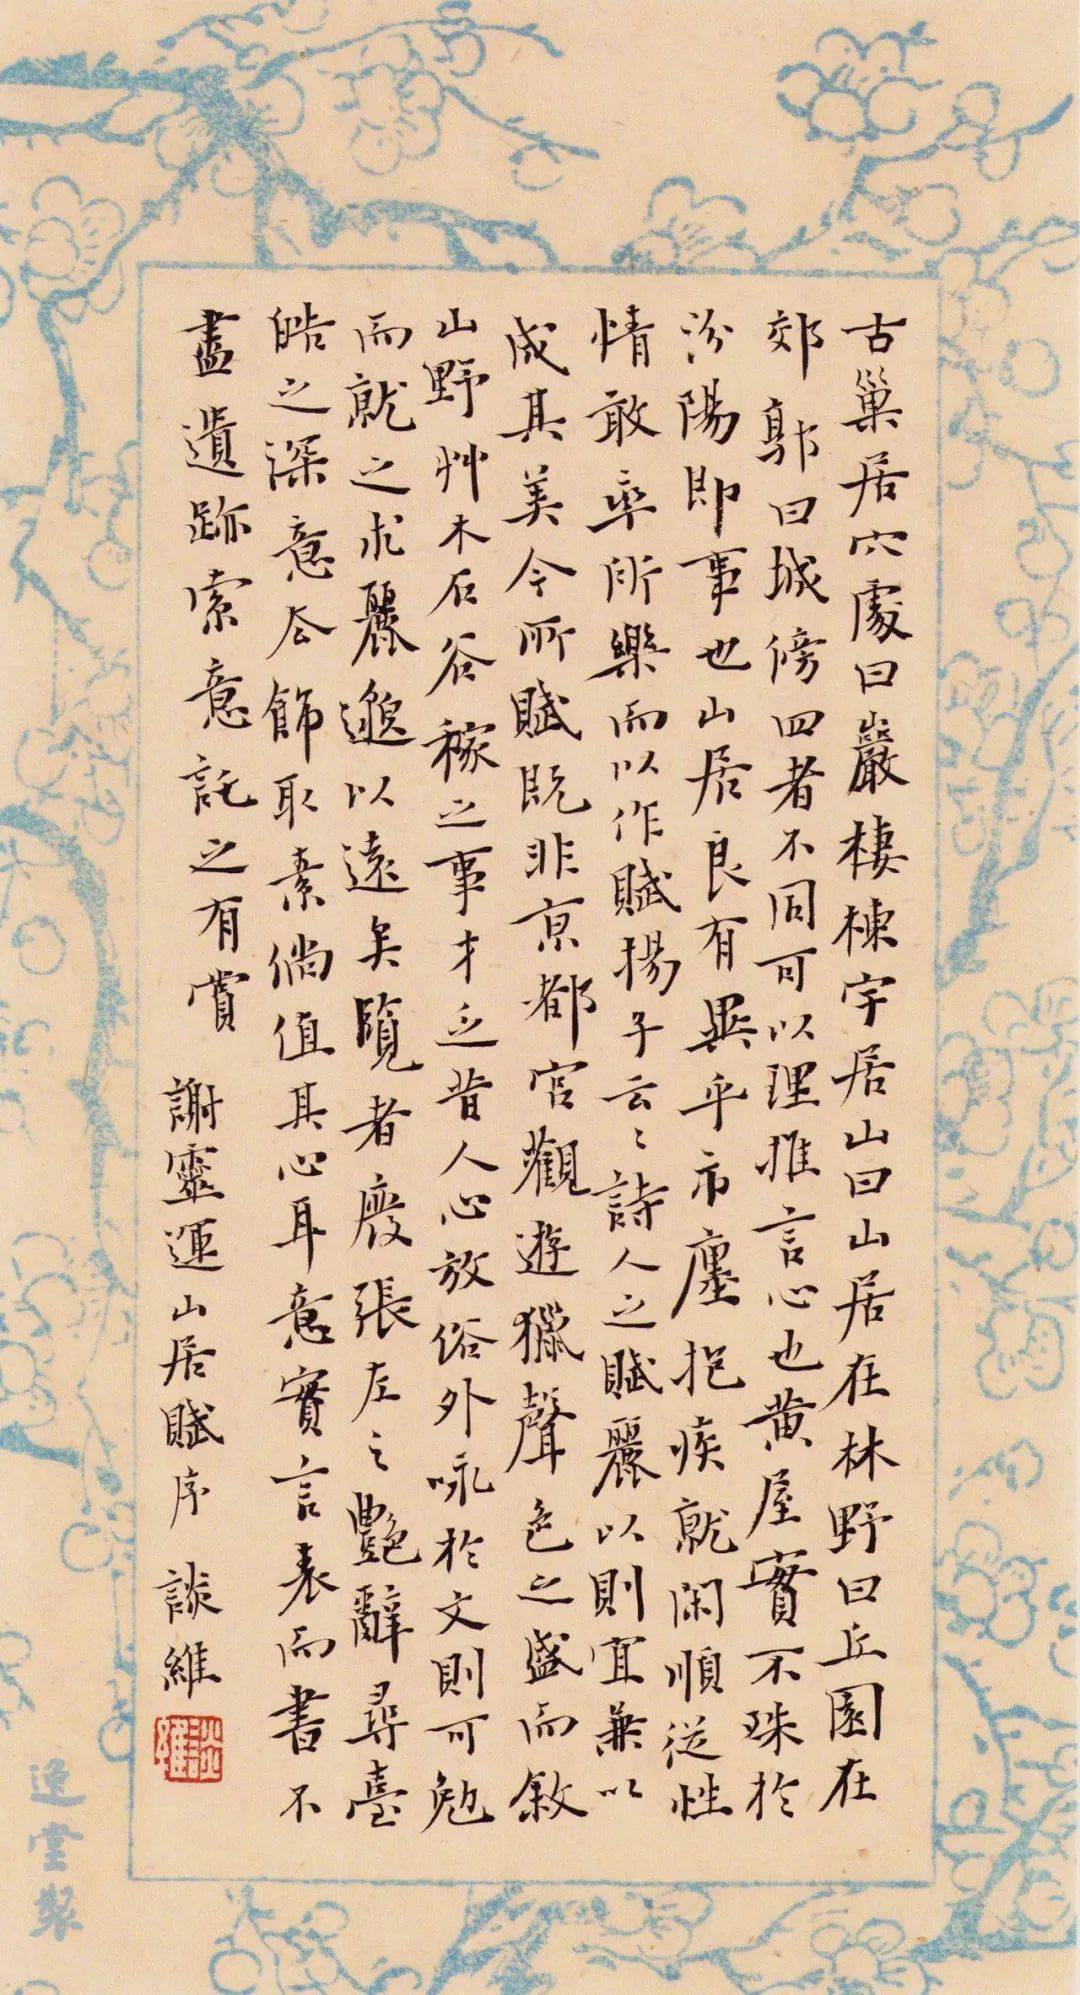 古巢居穴處曰巖棲棟宇居山曰山居在林野曰丘園在
郊郭曰城傍四者不同可以理推言心也黄屋實不殊於
汾陽即事也山居良有異乎市廛抱疾就閑順從性
情敢率所樂而以作賦揚子云〻詩人之賦麗以則宜兼以
成其美今所賦既非京都宮觀遊獵聲色之盛而敘
山野艸木石谷稼之事才乏昔人心放俗外咏於文則可勉
而就之求麗邈以遠矣覽者廢張左之艷辭尋臺
皓之深意去飾取素倘值其心耳意實言表而書不
盡遺跡索意託之有賞
謝靈運山居賦序 談維
談維
逸堂製